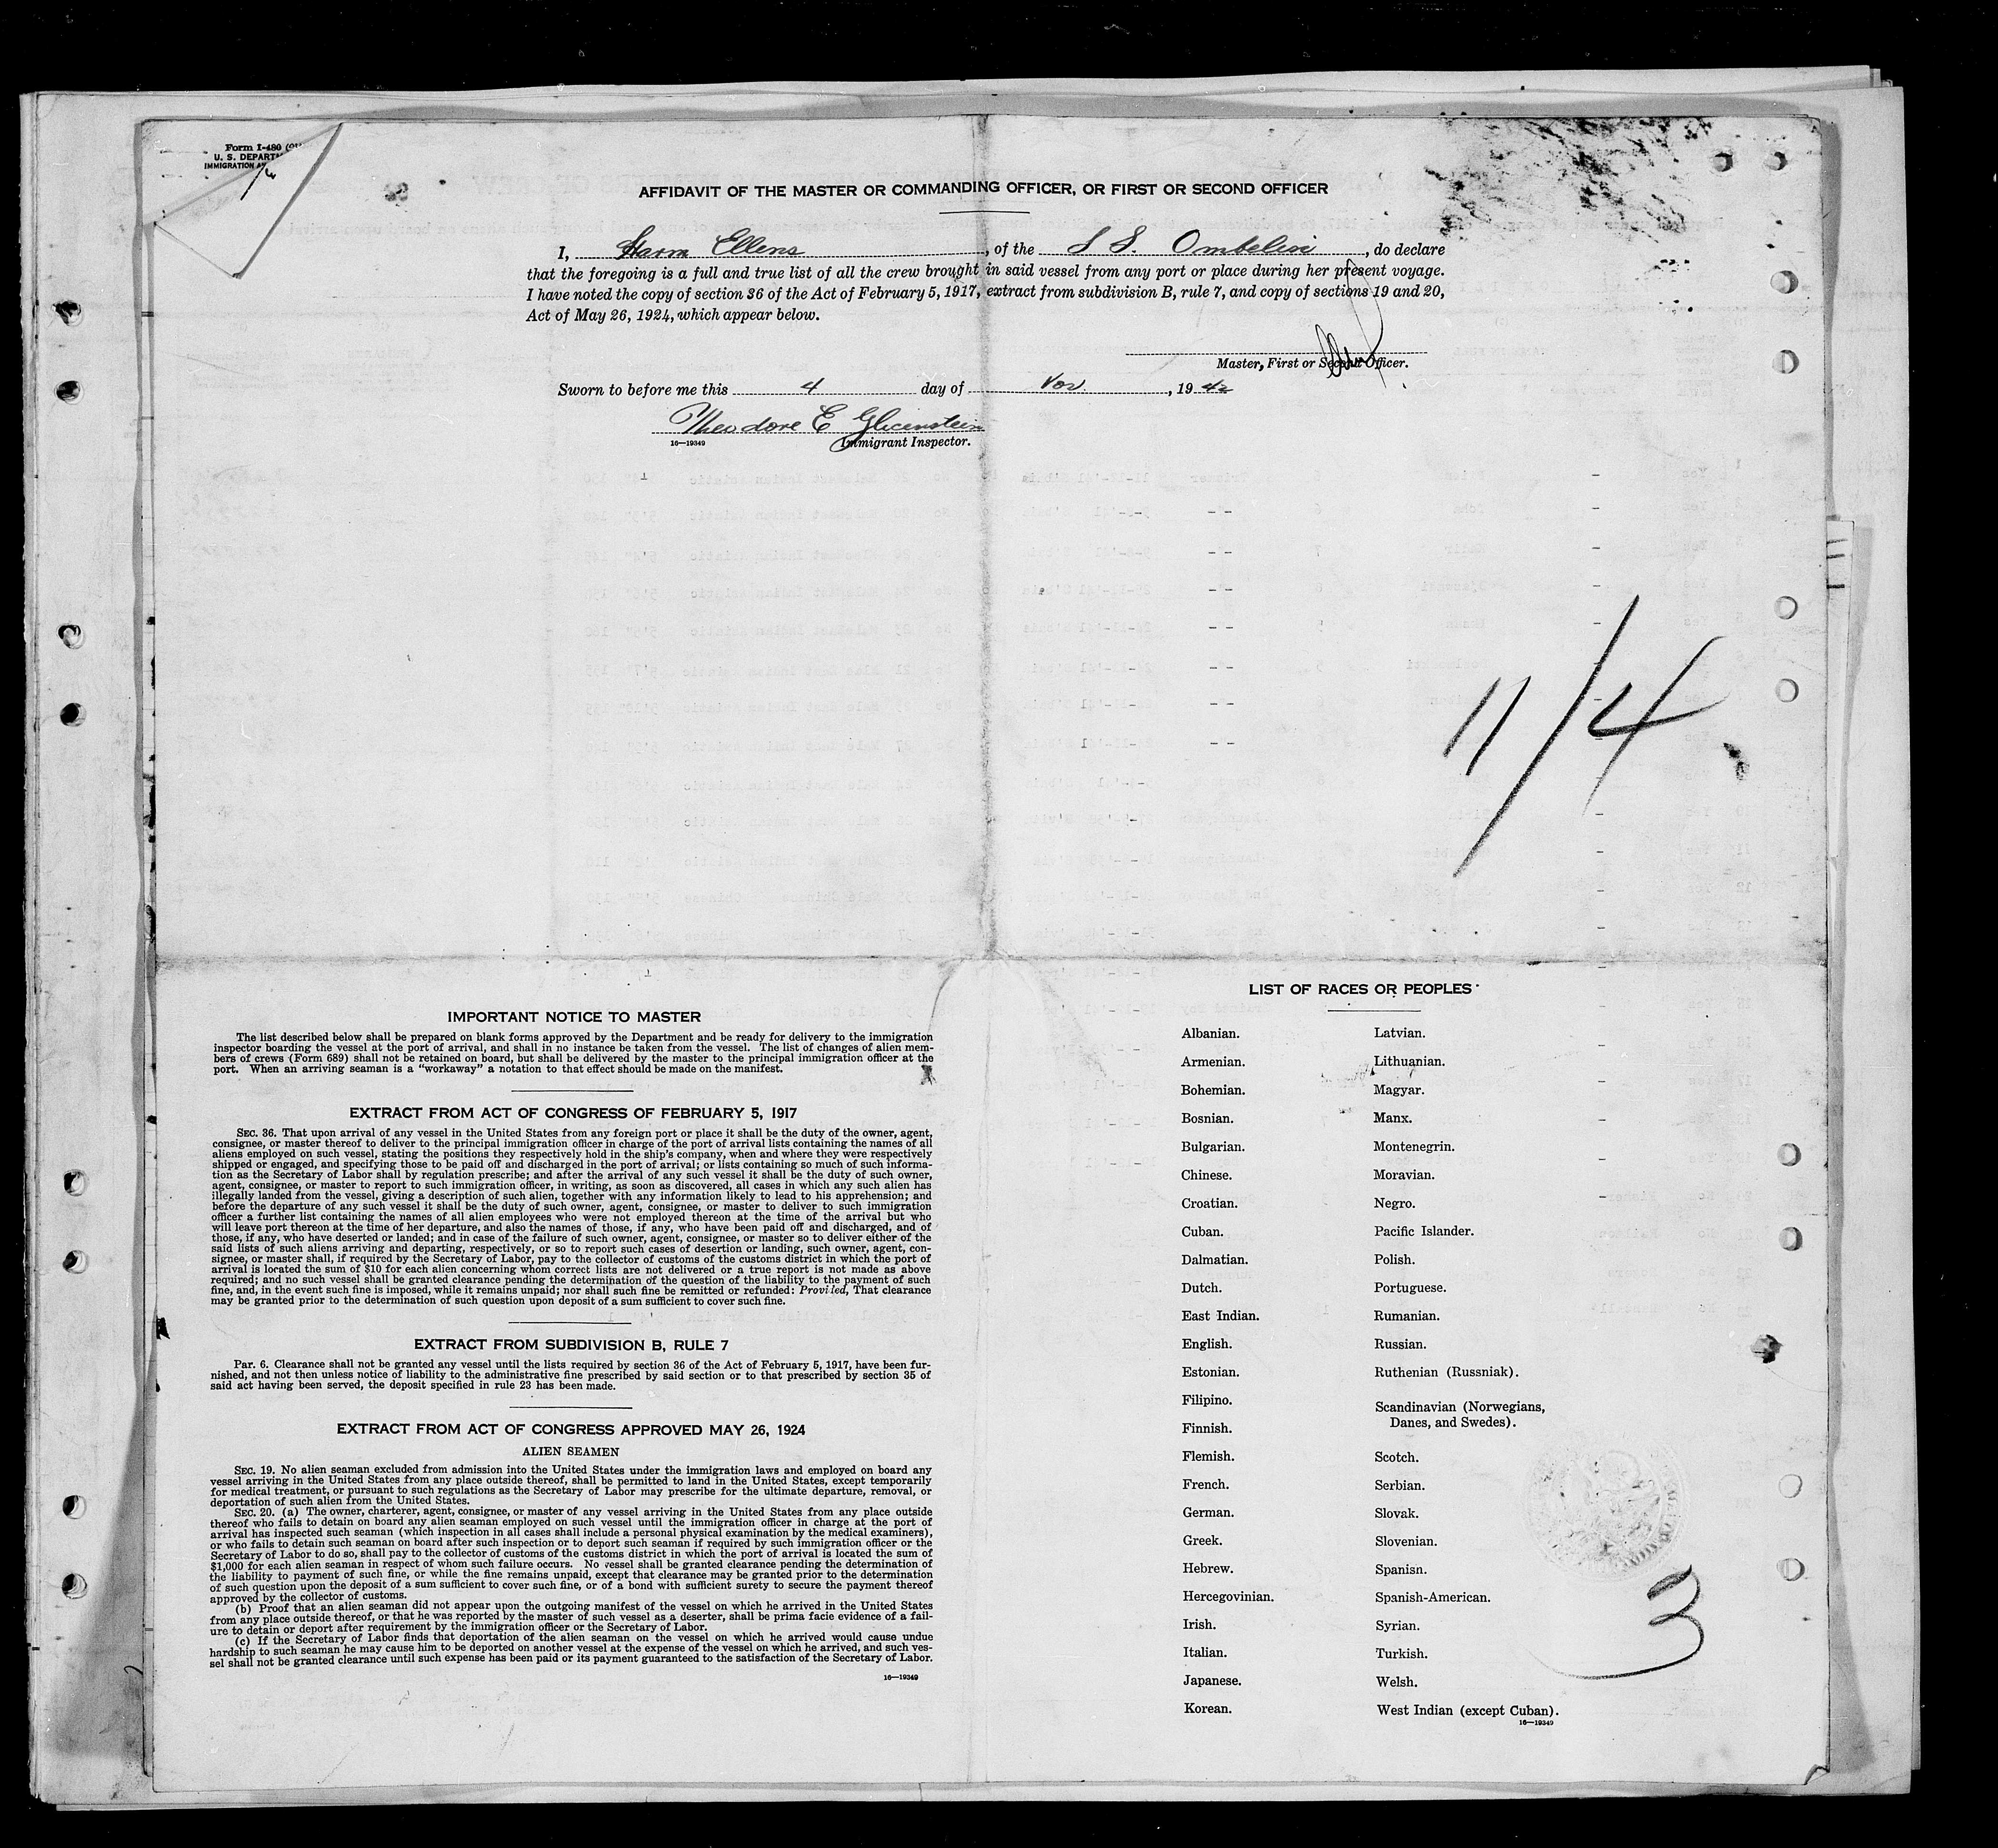 Form I-480
U. S. DEPART
IMMIGRATION
AFFIDAVIT OF THE MASTER OR COMMANDING OFFICER, OR FIRST OR SECOND OFFICER
I, Harm Ellens, of the S S. Ombelin, do declare
that the foregoing is a full and true list of all the crew brought in said vessel from any port or place during her present voyage.
I have noted the copy of section 36 of the Act of February 5, 1917, extract from subdivision B, rule 7, and copy of sections 19 and 20,
Act of May 26, 1924, which appear below.
Master, First or Second Officer.
Sworn to before me this 4 day of Nov, 1942
Theodore E Glicenstein
16—19349 Immigrant Inspector.
11/4
IMPORTANT NOTICE TO MASTER
The list described below shall be prepared on blank forms approved by the Department and be ready for delivery to the immigration
inspector boarding the vessel at the port of arrival, and shall in no instance be taken from the vessel. The list of changes of alien mem-
bers of crews (Form 689) shall not be retained on board, but shall be delivered by the master to the principal immigration officer at the
port. When an arriving seaman is a "workaway" a notation to that effect should be made on the manifest.
EXTRACT FROM ACT OF CONGRESS OF FEBRUARY 5, 1917
SEC. 36. That upon arrival of any vessel in the United States from any foreign port or place it shall be the duty of the owner, agent,
consignee, or master thereof to deliver to the principal immigration officer in charge of the port of arrival lists containing the names of all
aliens employed on such vessel, stating the positions they respectively hold in the ship's company, when and where they were respectively
shipped or engaged, and specifying those to be paid off and discharged in the port of arrival; or lists containing so much of such informa-
tion as the Secretary of Labor shall by regulation prescribe; and after the arrival of any such vessel it shall be the duty of such owner,
agent, consignee, or master to report to such immigration officer, in writing, as soon as discovered, all cases in which any such alien has
illegally landed from the vessel, giving a description of such alien, together with any information likely to lead to his apprehension; and
before the departure of any such vessel it shall be the duty of such owner, agent, consignee, or master to deliver to such immigration
officer a further list containing the names of all alien employees who were not employed thereon at the time of the arrival but who
will leave port thereon at the time of her departure, and also the names of those, if any, who have been paid off and discharged, and of
those, if any, who have deserted or landed; and in case of the failure of such owner, agent, consignee, or master so to deliver either of the
said lists of such aliens arriving and departing, respectively, or so to report such cases of desertion or landing, such owner, agent, con-
signee, or master shall, if required by the Secretary of Labor, pay to the collector of customs of the customs district in which the port of
arrival is located the sum of $10 for each alien concerning whom correct lists are not delivered or a true report is not made as above
required; and no such vessel shall be granted clearance pending the determination of the question of the liability to the payment of such
fine, and, in the event such fine is imposed, while it remains unpaid; nor shall such fine be remitted or refunded: Provided, That clearance
may be granted prior to the determination of such question upon deposit of a sum sufficient to cover such fine.
EXTRACT FROM SUBDIVISION B, RULE 7
Par. 6. Clearance shall not be granted any vessel until the lists required by section 36 of the Act of February 5, 1917, have been fur-
nished, and not then unless notice of liability to the administrative fine prescribed by said section or to that prescribed by section 35 of
said act having been served, the deposit specified in rule 23 has been made.
EXTRACT FROM ACT OF CONGRESS APPROVED MAY 26, 1924
ALIEN SEAMEN
SEC. 19. No alien seaman excluded from admission into the United States under the immigration laws and employed on board any
vessel arriving in the United States from any place outside thereof, shall be permitted to land in the United States, except temporarily
for medical treatment, or pursuant to such regulations as the Secretary of Labor may prescribe for the ultimate departure, removal, or
deportation of such alien from the United States.
SEC. 20. (a) The owner, charterer, agent, consignee, or master of any vessel arriving in the United States from any place outside
thereof who fails to detain on board any alien seaman employed on such vessel until the immigration officer in charge at the port of
arrival has inspected such seaman (which inspection in all cases shall include a personal physical examination by the medical examiners),
or who fails to detain such seaman on board after such inspection or to deport such seaman if required by such immigration officer or the
Secretary of Labor to do so, shall pay to the collector of customs of the customs district in which the port of arrival is located the sum of
$1,000 for each alien seaman in respect of whom such failure occurs. No vessel shall be granted clearance pending the determination of
the liability to payment of such fine, or while the fine remains unpaid, except that clearance may be granted prior to the determination
of such question upon the deposit of a sum sufficient to cover such fine, or of a bond with sufficient surety to secure the payment thereof
approved by the collector of customs.
(b) Proof that an alien seaman did not appear upon the outgoing manifest of the vessel on which he arrived in the United States
from any place outside thereof, or that he was reported by the master of such vessel as a deserter, shall be prima facie evidence of a fail-
ure to detain or deport after requirement by the immigration officer or the Secretary of Labor.
(c) If the Secretary of Labor finds that deportation of the alien seaman on the vessel on which he arrived would cause undue
hardship to such seaman he may cause him to be deported on another vessel at the expense of the vessel on which he arrived, and such ves-
sel shall not be granted clearance until such expense has been paid or its payment guaranteed to the satisfaction of the Secretary of Labor.
16—19349
LIST OF RACES OR PEOPLES
Albanian.
Armenian.
Bohemian.
Bosnian.
Bulgarian.
Chinese.
Croatian.
Cuban.
Dalmatian.
Dutch.
East Indian.
English.
Estonian.
Filipino.
Finnish.
Flemish.
French.
German.
Greek.
Hebrew.
Hercegovinian.
Irish.
Italian.
Japanese.
Korean.
Latvian.
Lithuanian.
Magyar.
Manx.
Montenegrin.
Moravian.
Negro.
Pacific Islander.
Polish.
Portuguese.
Rumanian.
Russian.
Ruthenian (Russniak).
Scandinavian (Norwegians,
Danes, and Swedes).
Scotch.
Serbian.
Slovak.
Slovenian.
Spanish.
Spanish-American.
Syrian.
Turkish.
Welsh.
West Indian (except Cuban).
16—19349
3